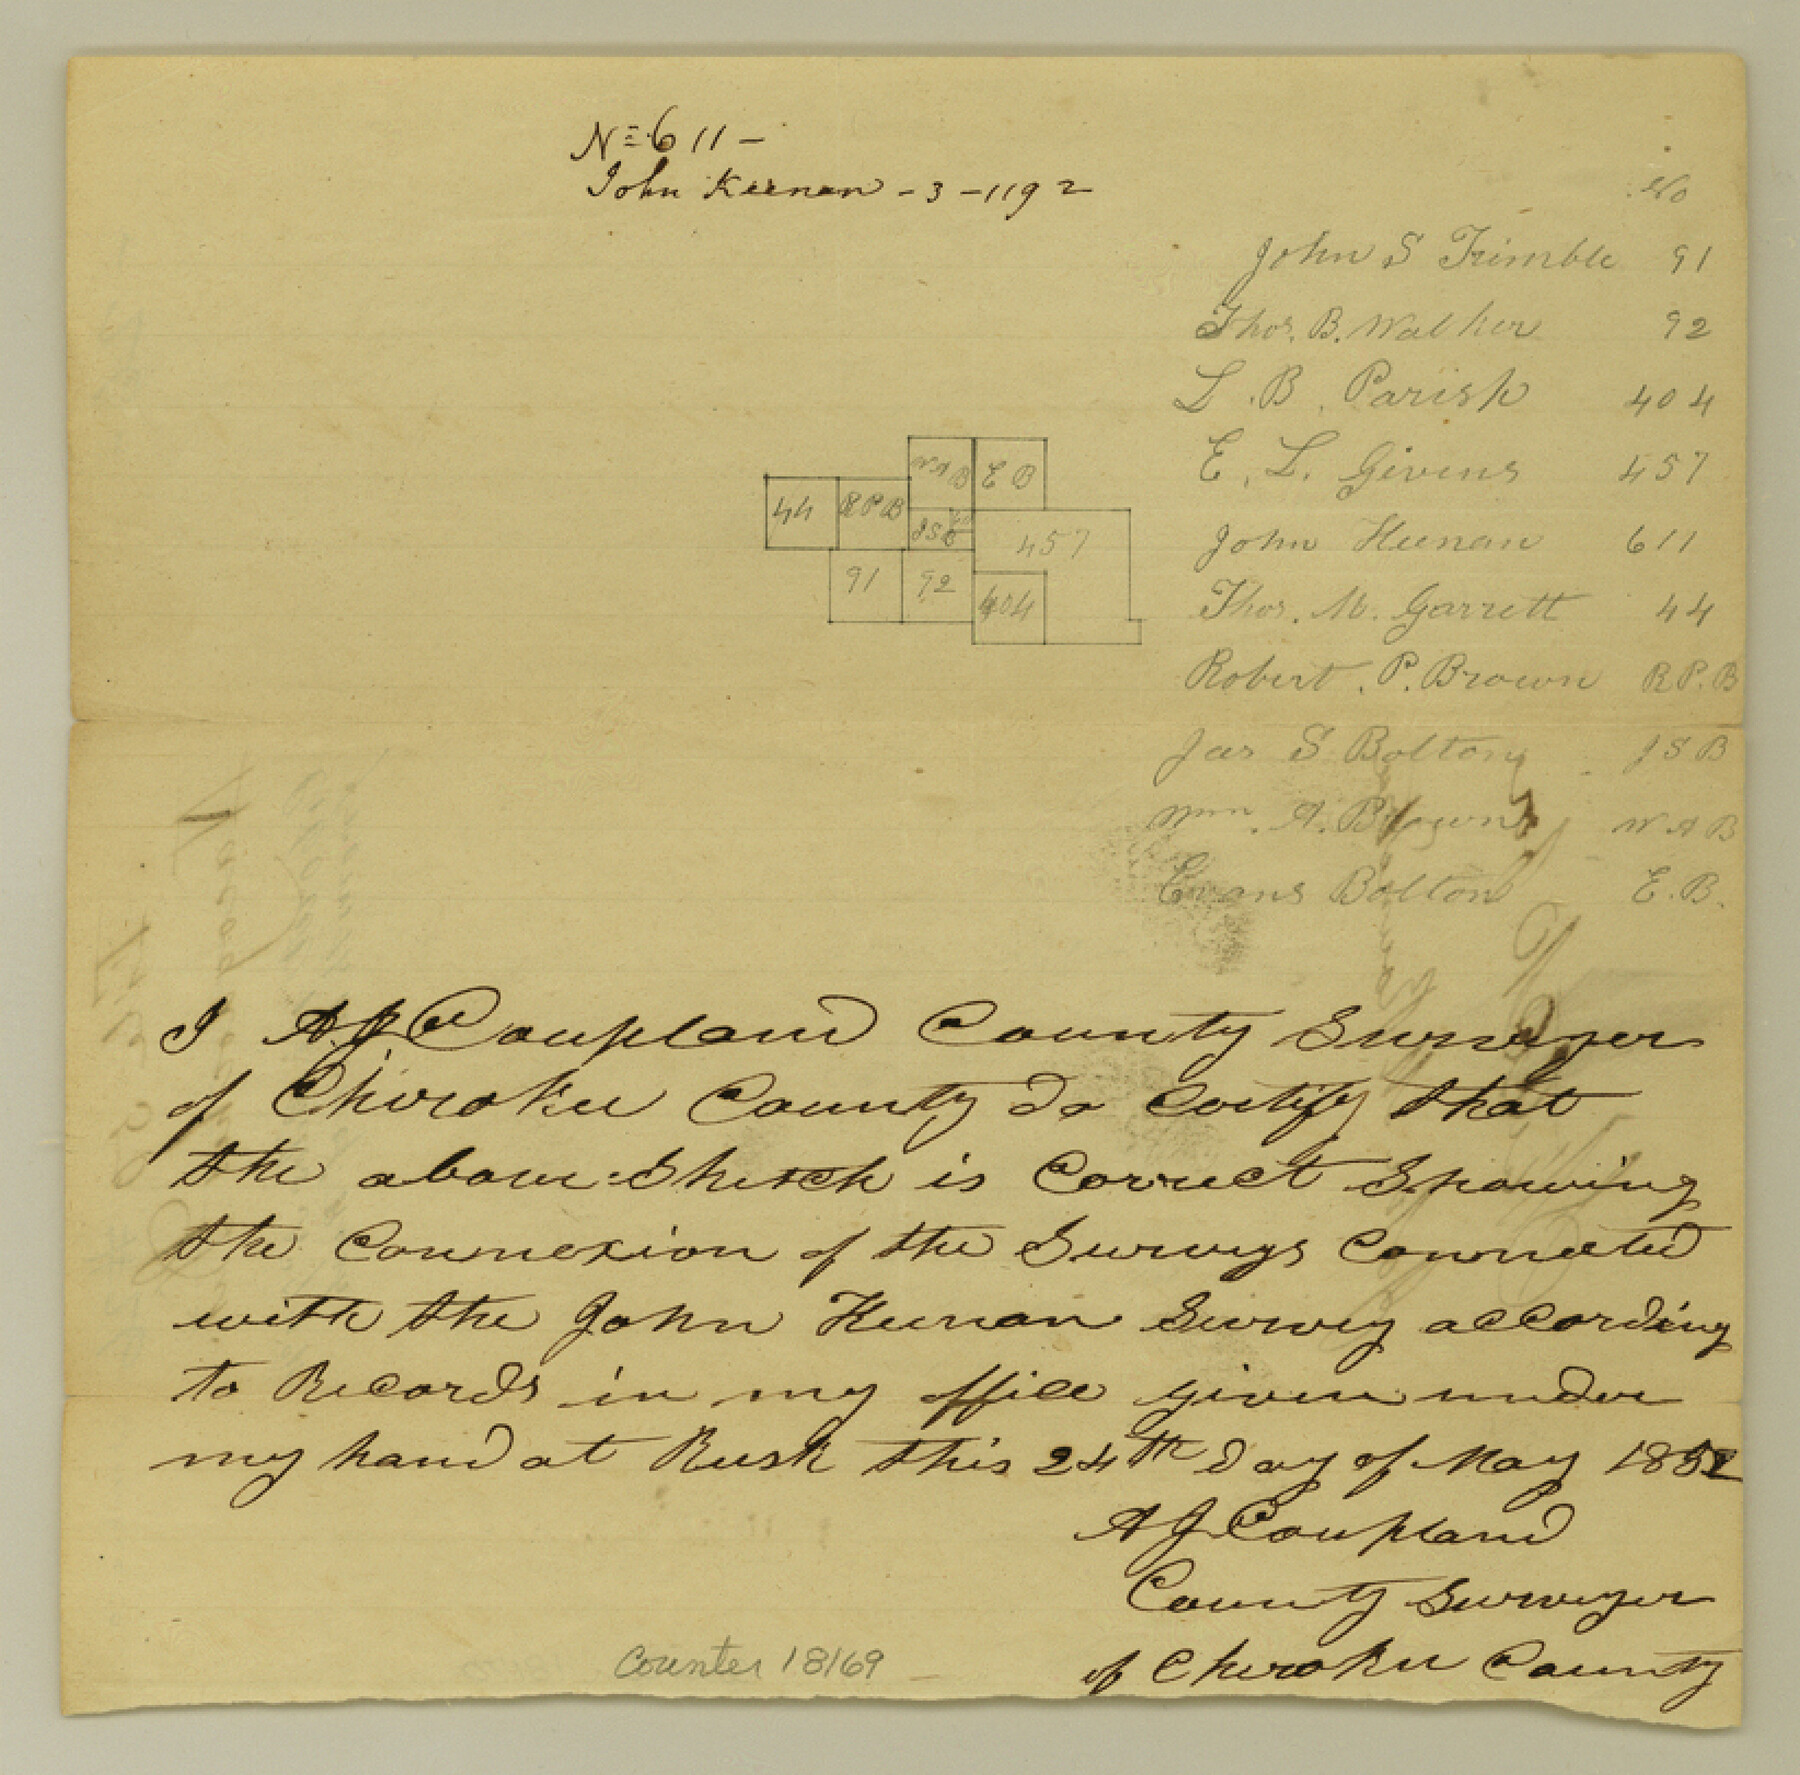 No 611 –
John Keenan – 3 – 1192
No
John S Trimble 91
Thos. B. Walker 92
L. B. Parish 404
E. L. Givens 457
John Keenan 611
Thos. M. Garrett 44
Robert. P. Brown R P. B
Jas S Bolton J S B
Wm. A. Brown W A B
Evans Bolton E. B.
W A B
E B
44
R P B
J S B
457
91
92
404
I A. J. Coupland County Surveyer
of Cherokee County do certify that
the above Sketch is Correct Showing
the Connexion of the Surveys Connected
with the John Keenan Survey according
to Records in my office given under
my hand at Rusk this 24th day of May 1852
A J Coupland
County Surveyer
of Cherokee County
Counter 18169